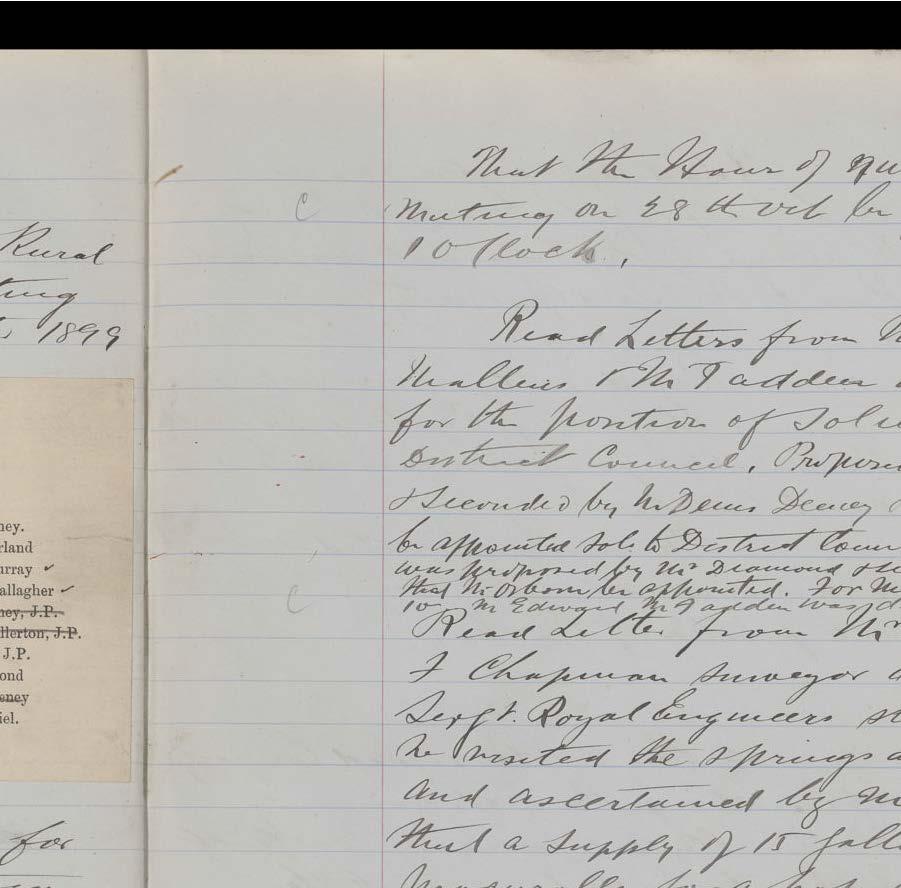 Rural
ting
1899
ney.
rland
urray ✓
allagher ✓
ney, J.P.
llerton, J.P.
J.P.
ond
eney
iel.
for
C
That the Hour of
Meeting on 28th Oct be
1 O Clock.
Read Letters from
Mallins & McFadden
for the position of
District Council, Propose
& seconded by Mr Denis Deeney
be appointed Solr to District Coun
was proposed by Mr Diamond & se
that Mr Osborn be appointed. For Mr
C
10 Mr Edward McFadden was d
Read Letter from Mr
F Chapman Surveyor
Sergt. Royal Engineers st
he visited the springs a
and ascertained by m
that a supply of 15 gall